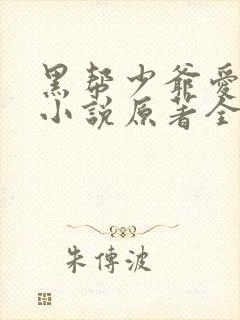 黑帮少爷爱
小说原著全
朱傳波